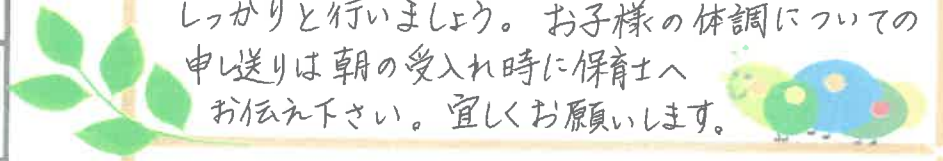 しっかりと行いましょう。お子様の体調についての
申し送りは朝の受入れ時に保育士へ
お伝え下さい。宜しくお願いします。